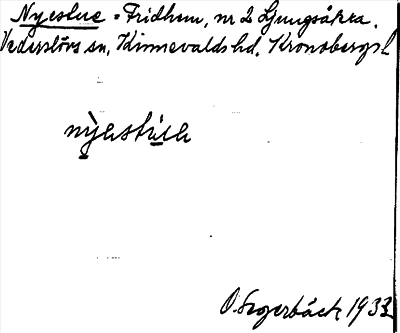 Nyestue = Fridhem, nr 2 Ljungsåkra.
Vederslövs sn, Kinnevalds hd. Kronobergs l
O. Segerbäck 1933